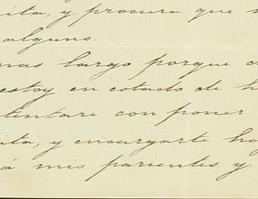 ita, y procura que
alguno.
mas largo porque
estoy en estado de
tentare con poner
ita, y encargarte
á mis parientes y